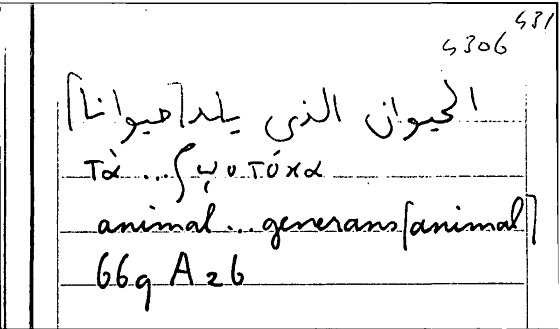 431
4306
الحيوان الذى يلد [حيوانا]
τὰ ... ζῳοτόκα
animal ... generans [animal]
669 A 26